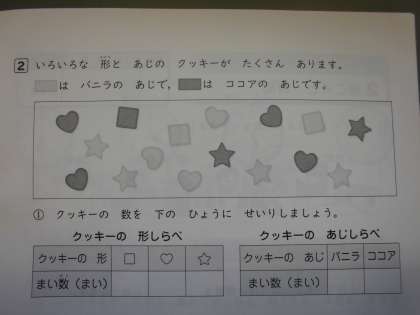 2 いろいろな 形と あじの クッキーが たくさん あります。
は バニラの あじで、 は ココアの あじです。
① クッキーの 数を 下の ひょうに せいりしましょう。
クッキーの 形しらべ
クッキーの 形
まい数(まい)
クッキーの あじしらべ
クッキーの あじ バニラ ココア
まい数(まい)